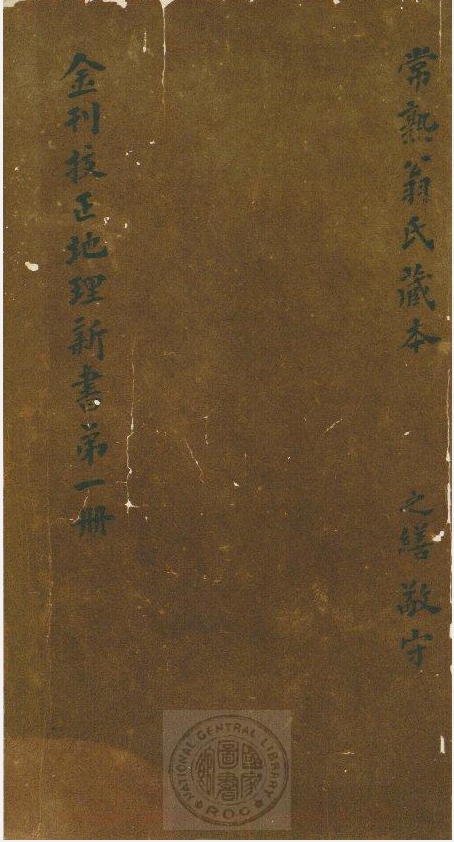 常熟翁氏藏本　之繕敬守
金刊校正地理新書弟一冊
國家圖書館
NATIONAL CENTRAL LIBRARY
ROC